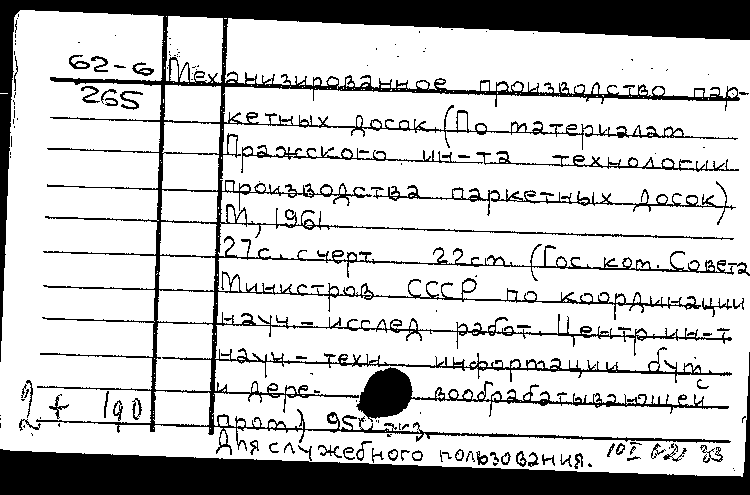 62-6 Механизированное производство пар-
265
кетных досок. (По материалам
Пражского ин-та технологии
производства паркетных досок)
М., 1961.
27с. с черт. 22см. (Гос. ком. Совета
Министров СССР по координации
науч.-исслед. работ. Центр. ин-т
науч.-техн. информации бум.
и дере- вообрабатывающей
2 + 190
пром.) 950 экз.
Для служебного пользования.